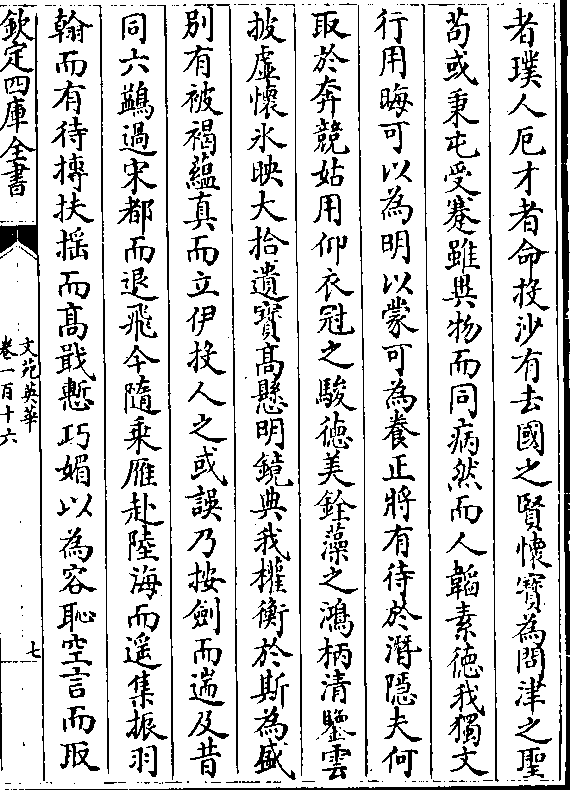 者璞人厄才者命投沙有去國之賢懷寶為問津之聖
苟或秉屯受蹇雖異物而同病然而人韜素德我獨文
行用晦可以為明以蒙可為養正將有待於潛隱夫何
取於奔競姑用仰衣冠之駿德美銓藻之鴻柄清鑒雲
披虛懷氷映大拾遺寶高懸明鏡典我權衡於斯為盛
别有被褐藴真而立伊投人之或誤乃按劍而遄及昔
同六鷁過宋都而退飛今隨乘雁赴陸海而遥集振羽
翰而有待摶扶揺而髙戢慙巧媚以為容恥空言而取
欽定四庫全書
文苑英華
卷一百十六
七